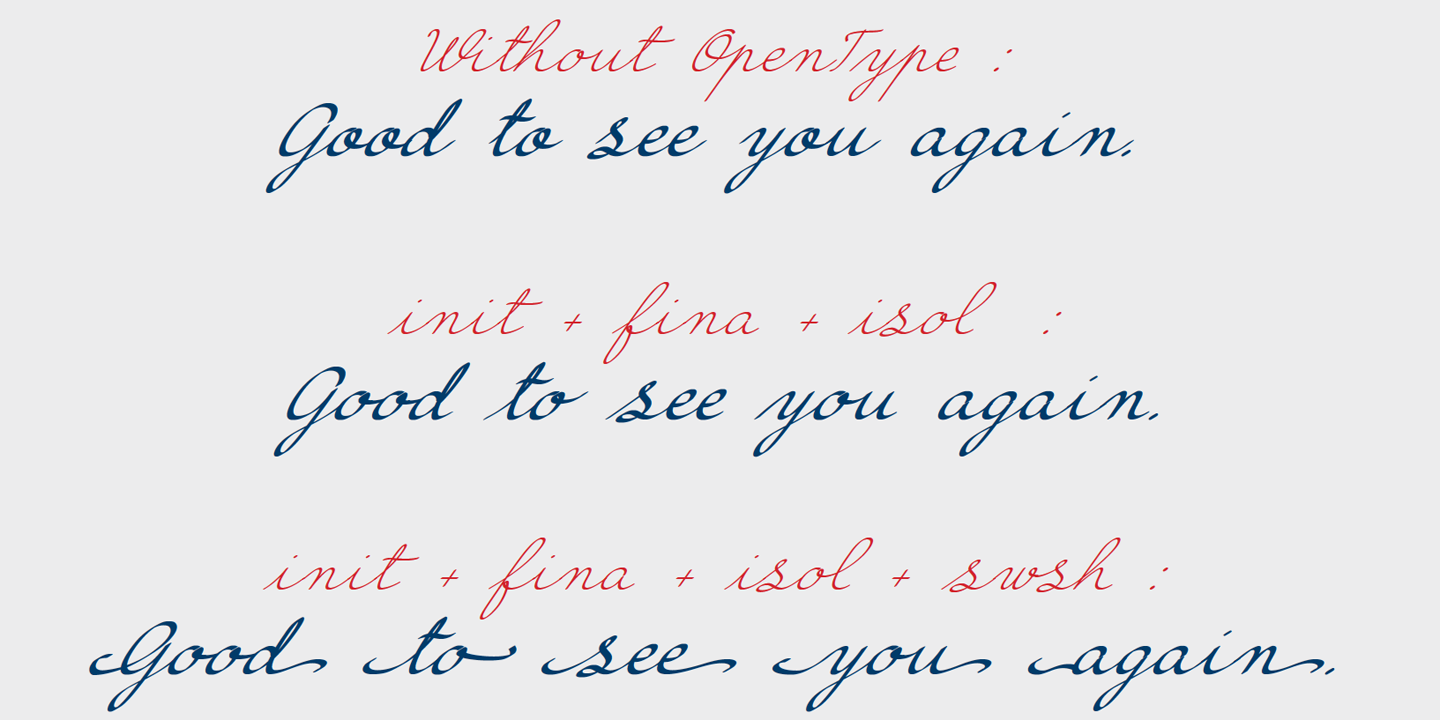 Without OpenType :
Good to see you again.
init + fina + isol :
Good to see you again.
init + fina + isol + swsh :
Good to see you again.